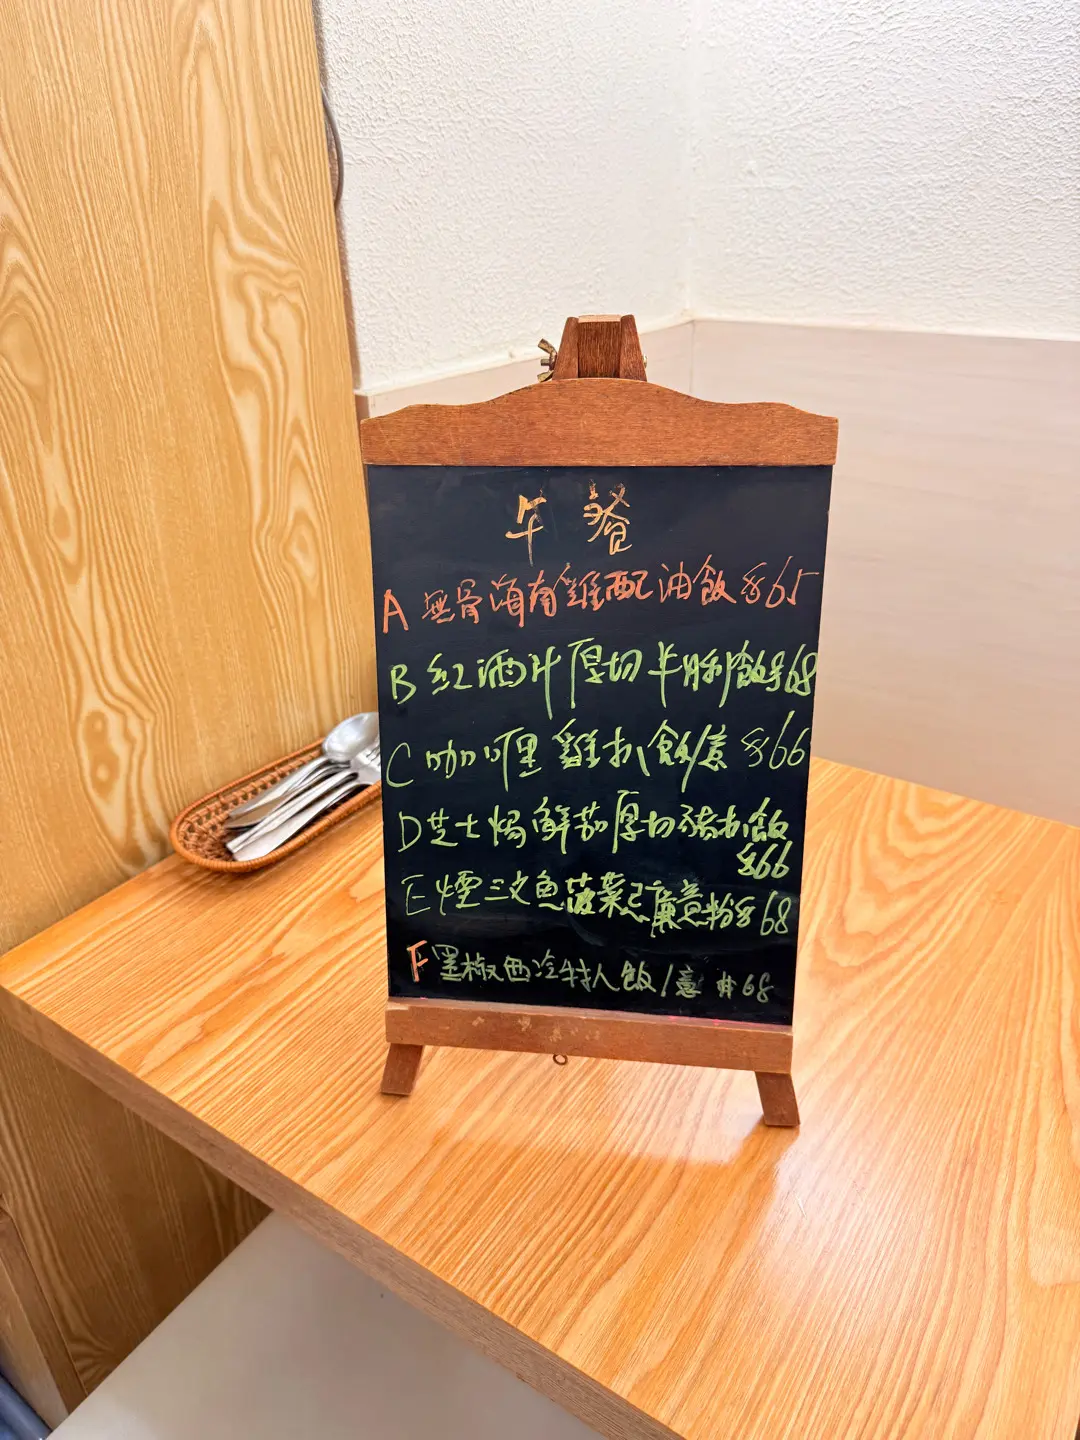 午餐
A 無骨海南雞配油飯 $65
B 紅酒汁厚切牛脷飯 $68
C 咖喱雞扒飯/意 $66
D 芝士焗鮮茄厚切豬扒飯
$66
E 煙三文魚菠菜忌廉意粉 $68
F 黑椒西冷牛扒飯/意 $68